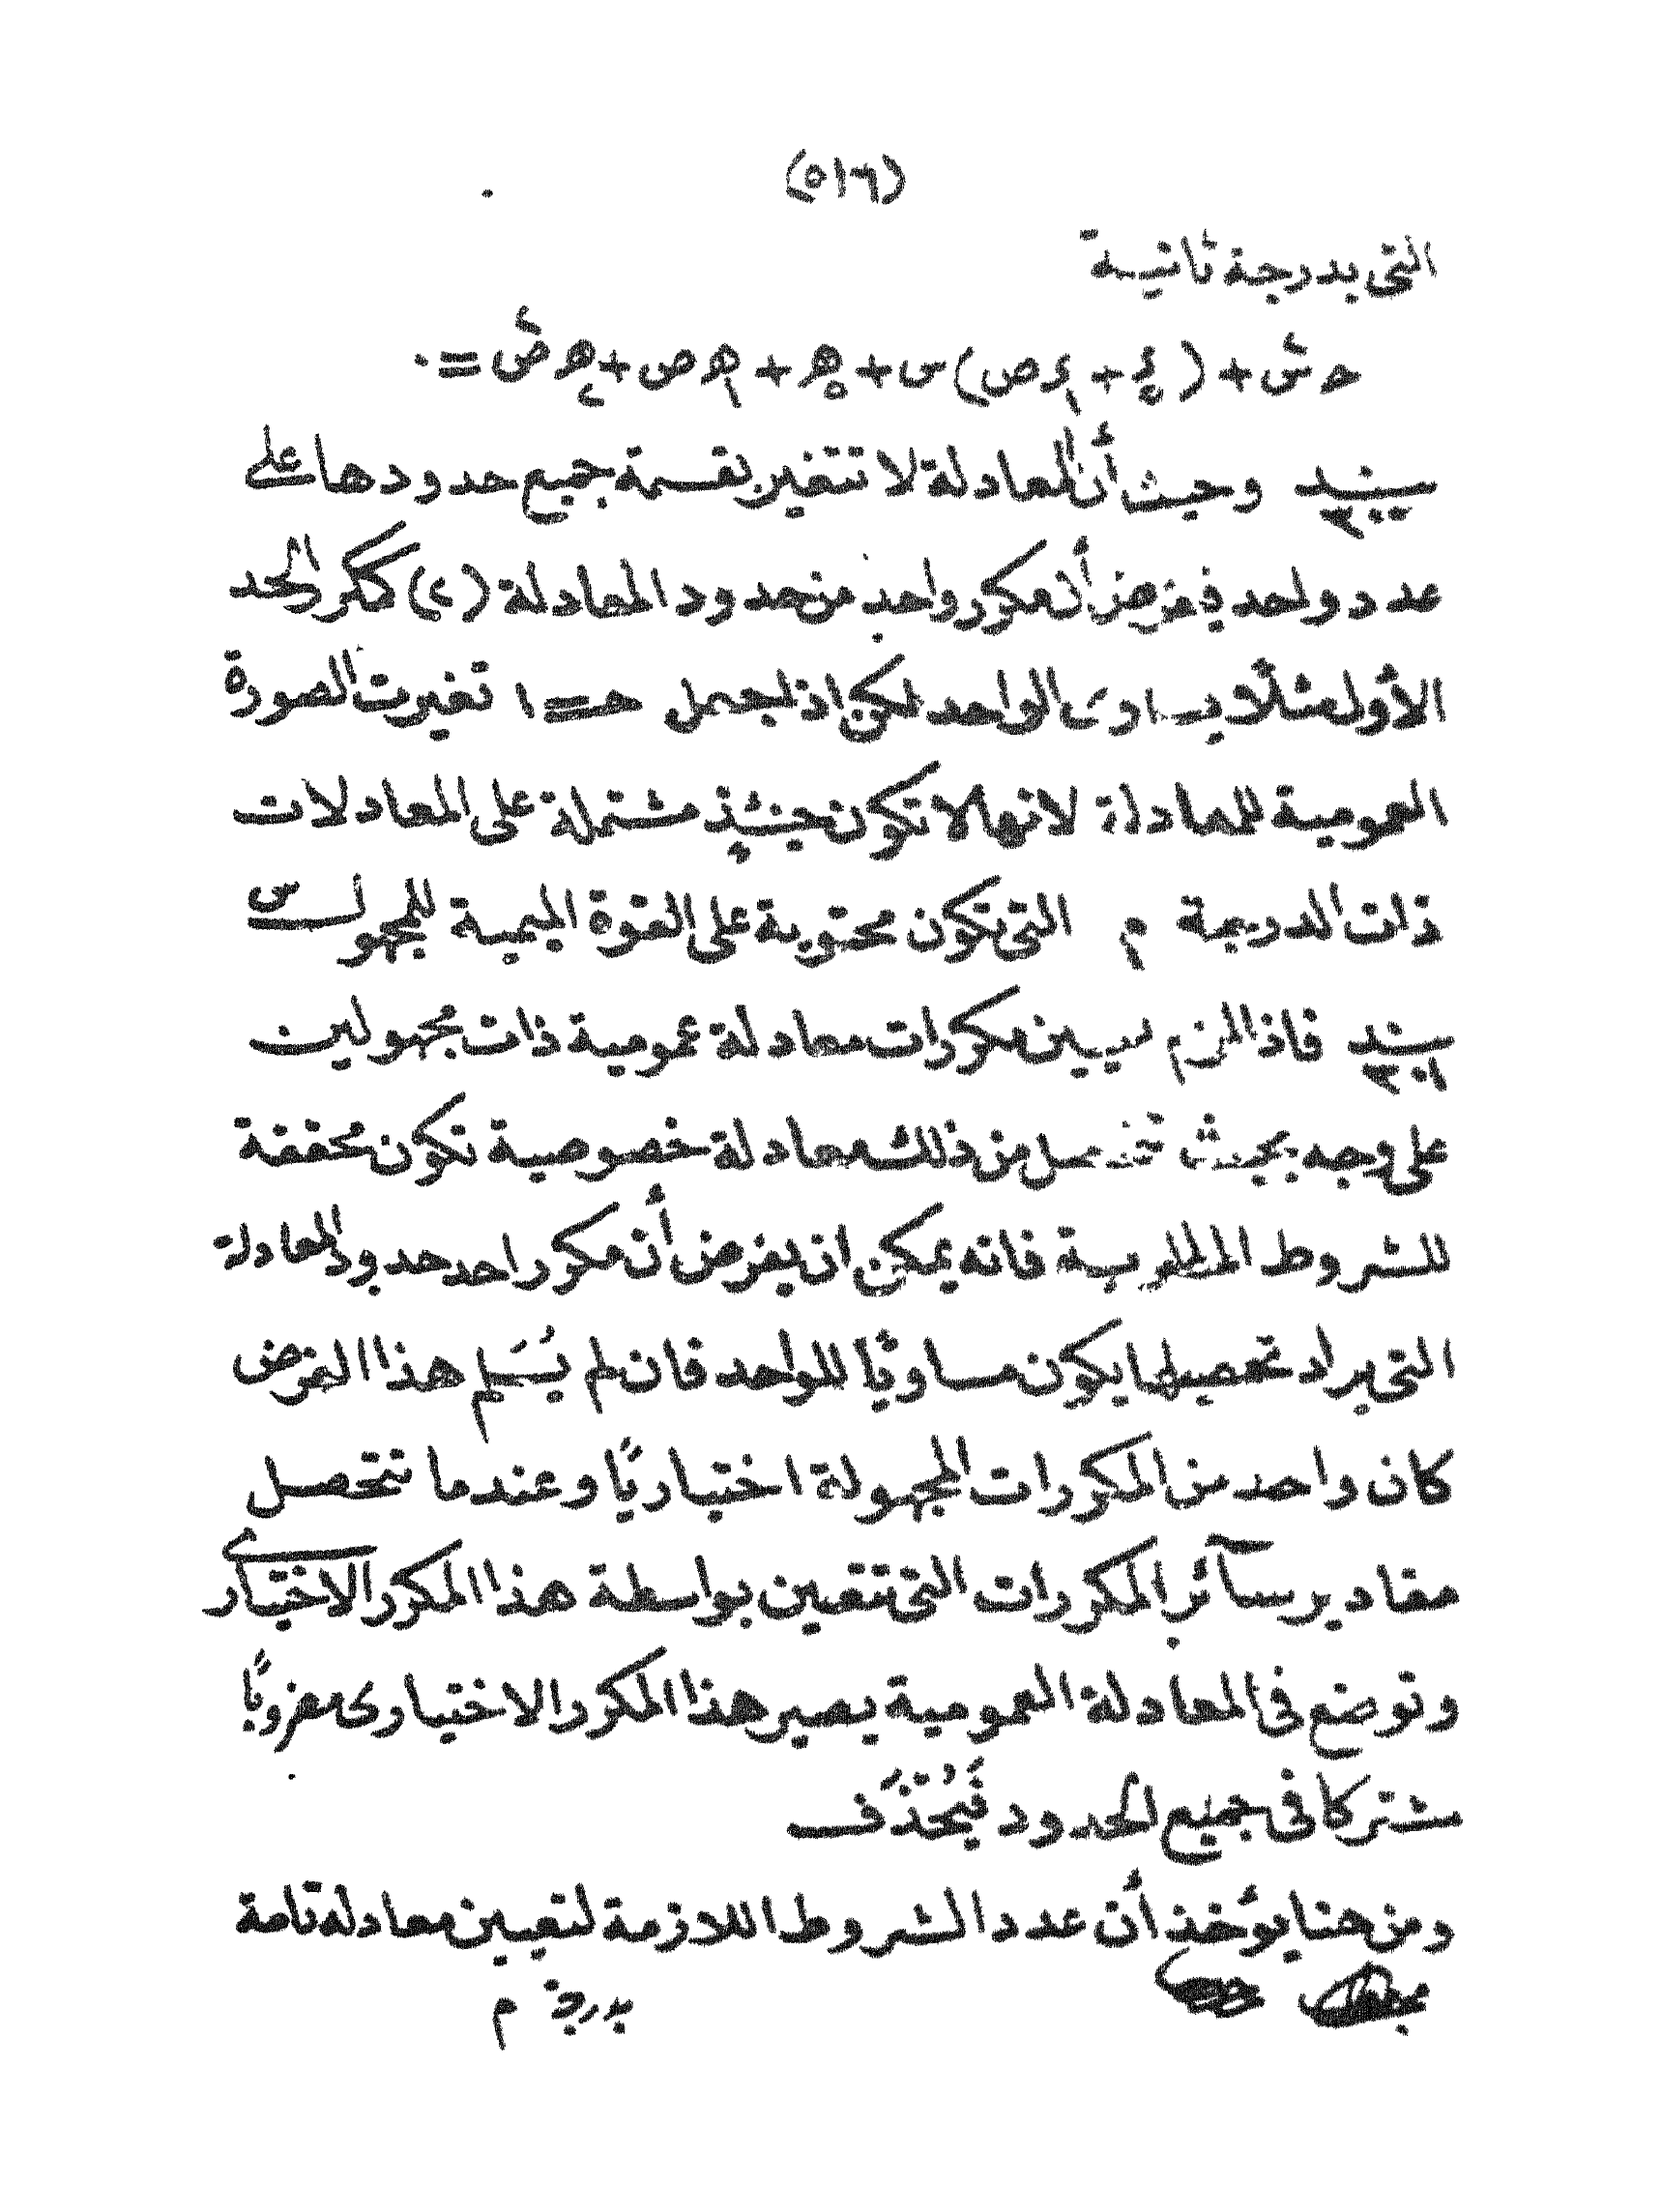 (٥١٦)
التى بدرجة ثانية
حـ س٢ + (ء. + ء١ ص) س + هـ. + هـ١ ص + هـ٢ ص٢ = ٠
بند ٢٠٠ وحيث أن المعادلة لا تتغير بقسمة جميع حدودها على
عدد واحد فيفرض أن مكرر واحد من حدود المعادلة (٢) ككرر الحد
الأول مثلًا يساوى الواحد لكن اذا جعل حـ = ١ تغيرت الصورة
العمومية للمعادلة لانها لا تكون حينئذٍ مشتملة على المعادلات
ذات الدرجة م التى تكون محتوية على القوة الميمية للمجهول س
بند ٢٠١ فاذا لزم تعيين مكررات معادلة عمومية ذات مجهولين
على وجه بحيث تتحصل من ذلك معادلة خصوصية تكون محققة
للشروط المطلوبة فانه يمكن ان يفرض أن مكرر احد حدود المعادلة
التى يراد تحصيلها يكون مساويًا للواحد فان لم يُسَلم هذا الفرض
كان واحد من المكررات المجهولة اختياريًا وعندما تتحصل
مقادير سآئر المكررات التى تتعين بواسطة هذا المكرر الاختيارى
وتوضع فى المعادلة العمومية يصير هذا المكرر الاختيارى مضروبًا
مشتركا فى جميع الحدود فَيُحْذَف
ومن هنا يؤخذ أن عدد الشروط اللازمة لتعيين معادلة تامة
بدرجة م